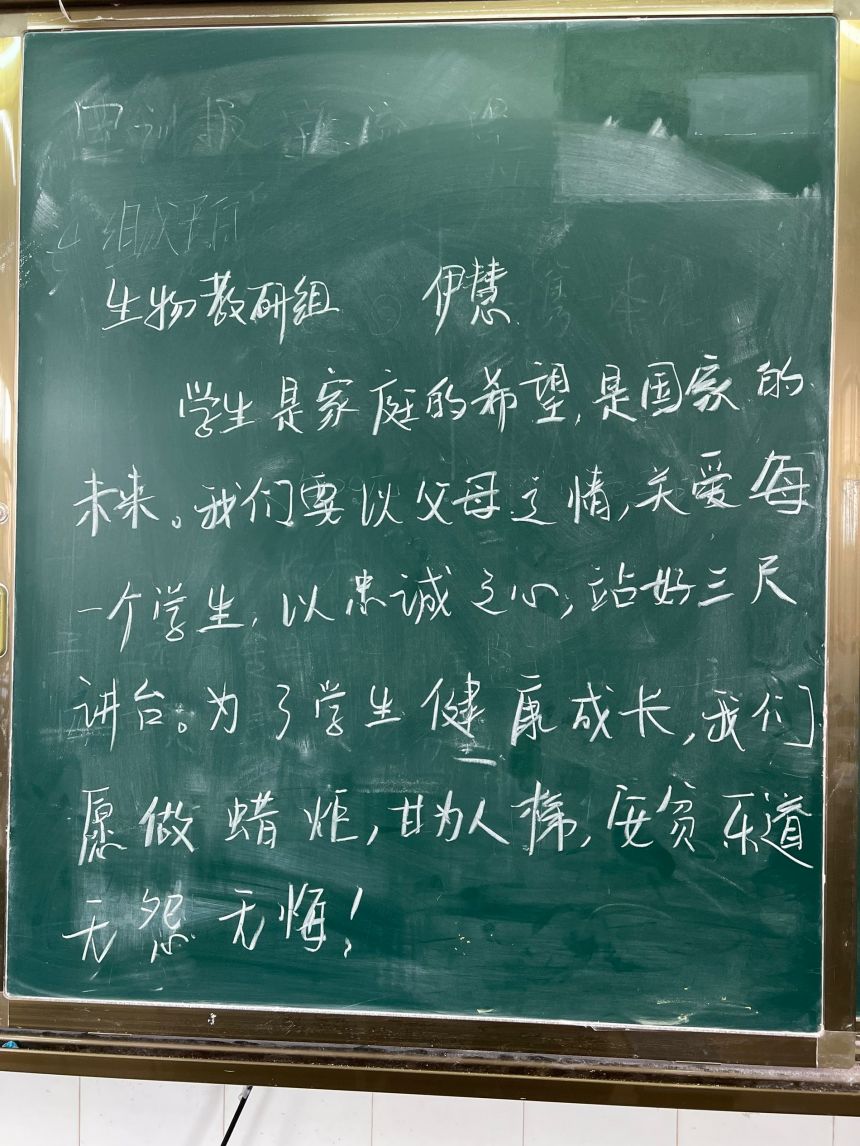 生物教研组 伊慧
学生是家庭的希望,是国家的
未来。我们要以父母之情,关爱每
一个学生,以忠诚之心,站好三尺
讲台。为了学生健康成长,我们
愿做蜡炬,甘为人梯,安贫乐道
无怨无悔!